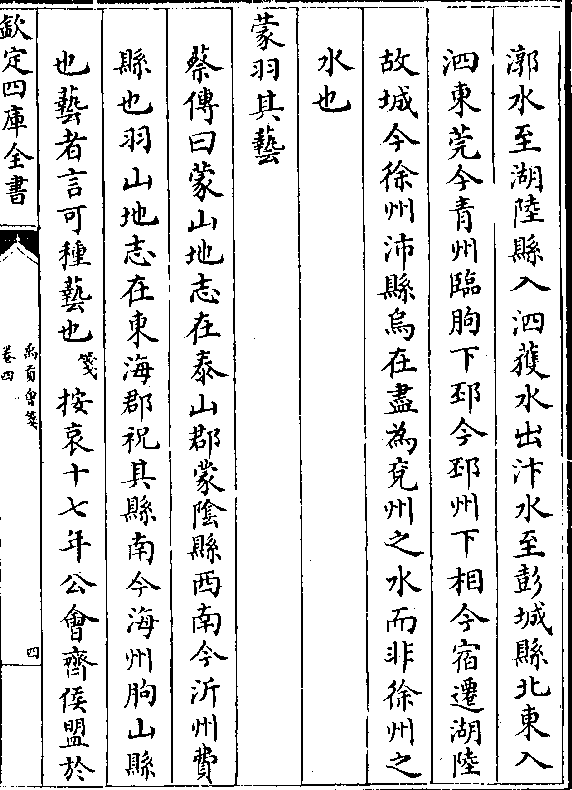 漷水至湖陸縣入泗獲水出汴水至彭城縣北東入
泗東莞今青州臨朐下邳今邳州下相今宿遷湖陸
故城今徐州沛縣烏在盡為兗州之水而非徐州之
水也
蒙羽其藝
蔡傳曰蒙山地志在泰山郡蒙陰縣西南今沂州費
縣也羽山地志在東海郡祝其縣南今海州朐山縣
也藝者言可種藝也箋按哀十七年公會齊侯盟於
欽定四庫全書
禹貢會箋
卷四
四